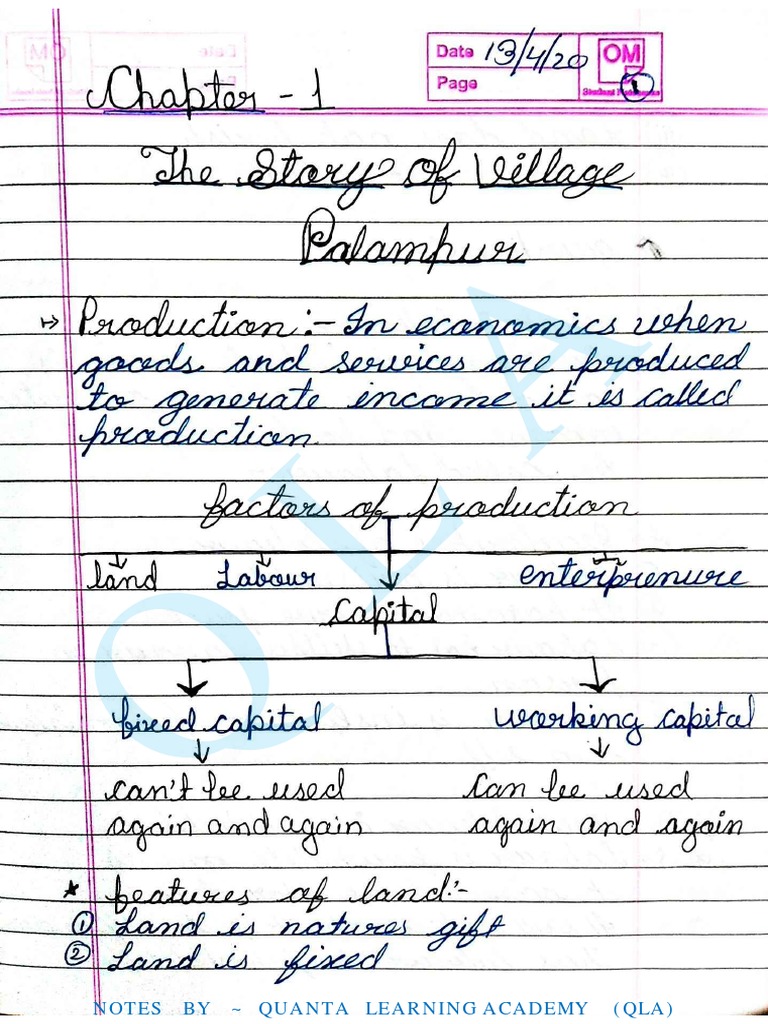 Date 13/4/20
OM
Page
1
Chapter - 1
The Story of Village
Palampur
Production :- In economics when
goods and services are produced
to generate income it is called
production.
factors of production
land Labour enterprenure
Capital
fixed capital working capital
can't be used can be used
again and again again and again
* features of land:-
① Land is natures gift
② Land is fixed
QLA
NOTES BY ~ QUANTA LEARNING ACADEMY (QLA)